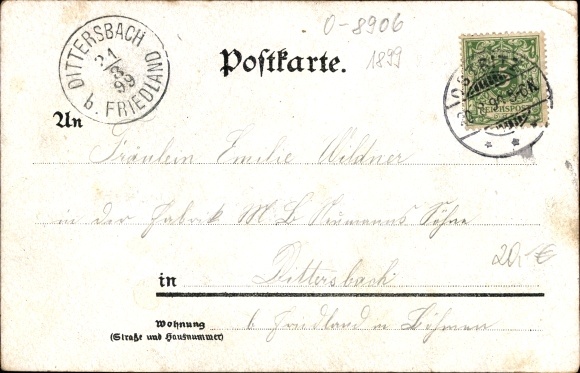 O-8906
1899
DITTERSBACH
21/3
99
b. FRIEDLAND
Postkarte.
OSTRITZ
REICHSPOST
An
Fräulein Emilie Wildner
in der Fabrik M. B. Neumanns Söhne
20,-€
in Dittersbach
Wohnung
(Straße und Hausnummer)
b. Friedland in Böhmen